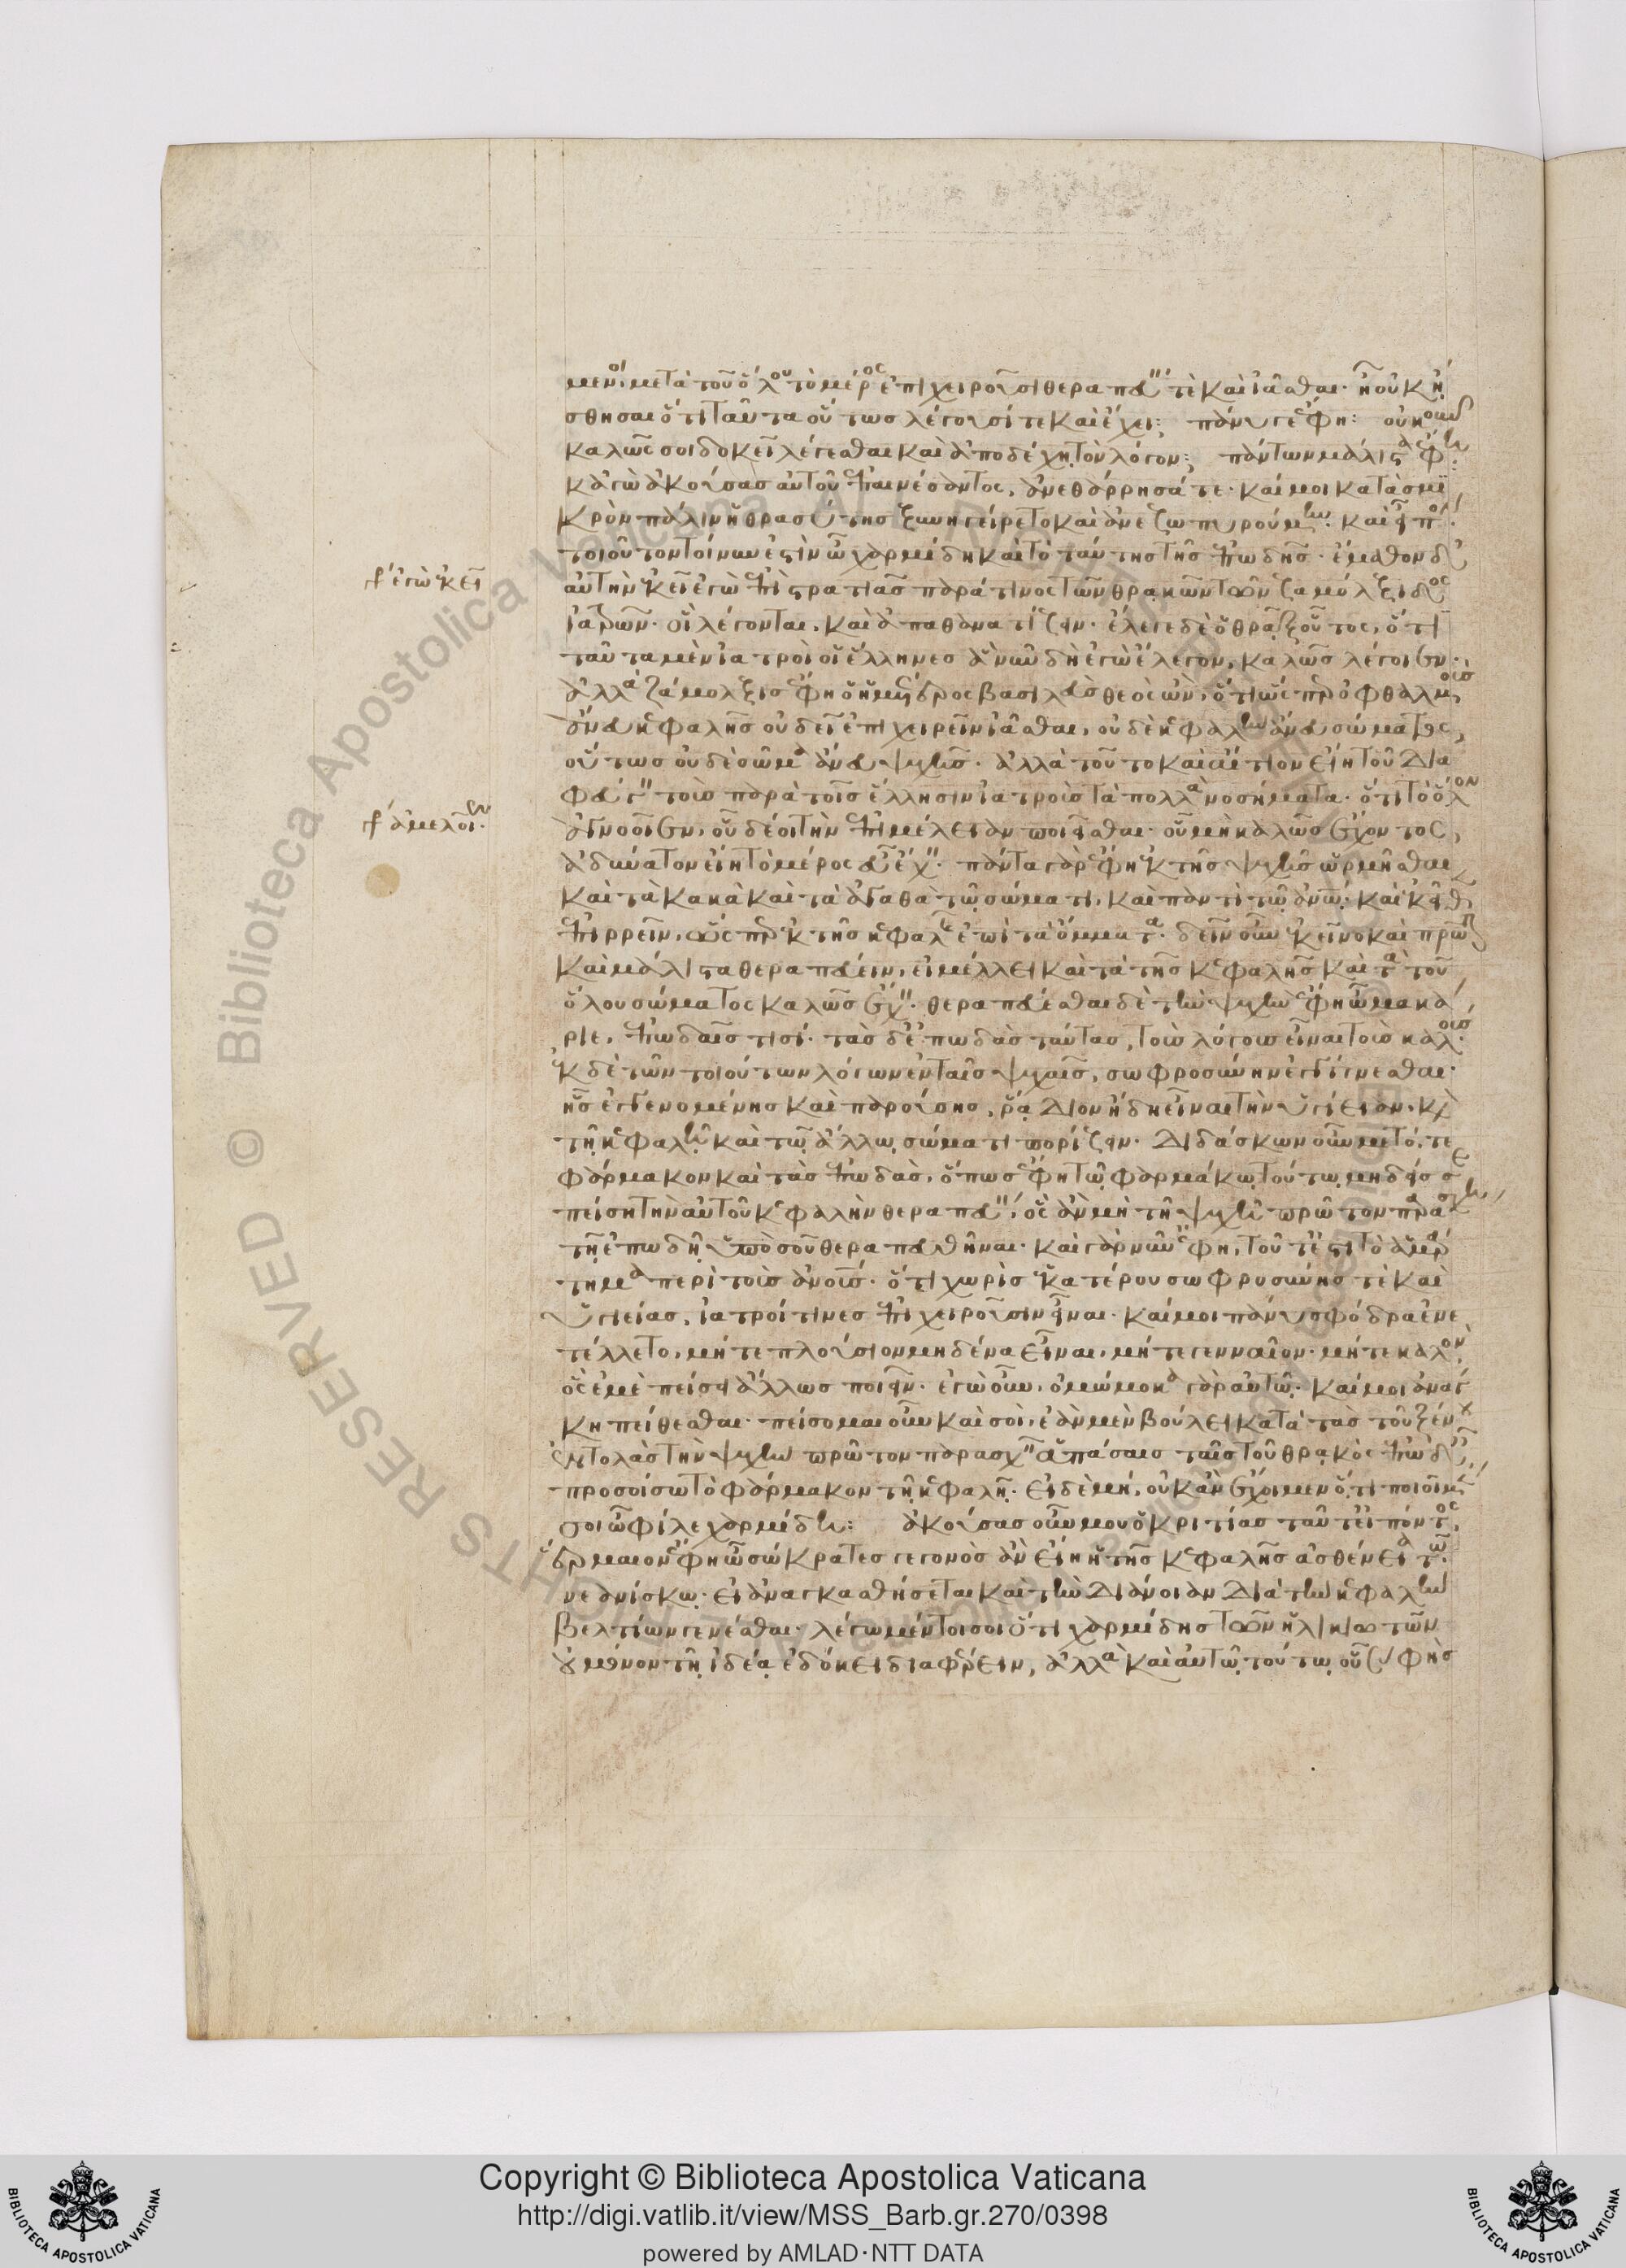 μενοι μετὰ τοῦ ὅλου τὸ μέρος ἐπιχειροῦσι θεραπεύειν τὲ καὶ ἰᾶσθαι. ἢ οὐκ ἤ
σθησαι ὅτι ταῦτα οὕτως λέγουσί τε καὶ ἔχει; πάνυ γε ἔφη: οὐκοῦν
καλῶς σοι δοκεῖ λέγεσθαι καὶ ἀποδέχῃ τὸν λόγον; πάντων μάλιστα ἔφη:
κἀγὼ ἀκούσας αὐτοῦ ἐπαινέσαντος, ἀνεθάρρησά τε. καί μοι κατὰ σμι
κρὸν πάλιν ἡ θρασύτης ξυνηγείρετο καὶ ἀνεζωπυρούμην. καὶ εἶπον·
τοιοῦτον τοίνυν ἐστὶν ὦ χαρμίδη καὶ τὸ ταύτης τῆς ἐπωδῆς. ἔμαθον δ'
αὐτὴν ἐκεῖ ἐγὼ ἐπὶ στρατιᾶς παρά τινος τῶν θρακῶν τῶν ζαμόλξιδος
ἰατρῶν. οἳ λέγονται, καὶ ἀπαθανατίζειν. ἔλεγε δὲ ὁ θρᾷξ οὗτος, ὅτι
ταῦτα μὲν ἰατροὶ οἱ ἕλληνες ἃ νῦν δὴ ἐγὼ ἔλεγον, καλῶς λέγοιεν.
ἀλλὰ ζάμολξις ἔφη ὁ ἡμέτερος βασιλεὺς θεὸς ὢν, ὅτι ὥσπερ ὀφθαλμοὺς
ἄνευ κεφαλῆς οὐ δεῖ ἐπιχειρεῖν ἰᾶσθαι, οὐδὲ κεφαλὴν ἄνευ σώματος,
οὕτως οὐδὲ σῶμα ἄνευ ψυχῆς. ἀλλὰ τοῦτο καὶ αἴτιον εἴη τοῦ δια
φεύγειν τοὺς παρὰ τοῖς ἕλλησιν ἰατροὺς τὰ πολλὰ νοσήματα. ὅτι τὸ ὅλον
ἀγνοοῖεν, οὗ δέοι τὴν ἐπιμέλειαν ποιεῖσθαι. οὗ μὴ καλῶς ἔχοντος,
ἀδύνατον εἴη τὸ μέρος εὖ ἔχειν. πάντα γὰρ ἔφη ἐκ τῆς ψυχῆς ὡρμῆσθαι
καὶ τὰ κακὰ καὶ τὰ ἀγαθὰ τῷ σώματι, καὶ παντὶ τῷ ἀνθρώπῳ. καὶ ἐκεῖθεν
ἐπιρρεῖν, ὥσπερ ἐκ τῆς κεφαλῆς ἐπὶ τὰ ὄμματα. δεῖν οὖν ἐκεῖνο καὶ πρῶτον
καὶ μάλιστα θεραπεύειν, εἰ μέλλει καὶ τὰ τῆς κεφαλῆς καὶ τὰ τοῦ
ὅλου σώματος καλῶς ἔχειν. θεραπεύεσθαι δὲ τὴν ψυχὴν ἔφη ὦ μακά
ριε, ἐπωδαῖς τισί. τὰς δ' ἐπωδὰς ταύτας, τοὺς λόγους εἶναι τοὺς καλούς.
ἐκ δὲ τῶν τοιούτων λόγων ἐν ταῖς ψυχαῖς, σωφροσύνην ἐγγίγνεσθαι.
ἧς ἐγγενομένης καὶ παρούσης, ῥᾴδιον ἤδη εἶναι τὴν ὑγίειαν. καὶ
τῇ κεφαλῇ καὶ τῷ ἄλλῳ σώματι πορίζειν. διδάσκων οὖν με τό, τε
φάρμακον καὶ τὰς ἐπωδὰς, ὅπως ἔφη τῷ φαρμάκῳ τούτῳ μηδείς σε
πείσῃ τὴν αὐτοῦ κεφαλὴν θεραπεύειν, ὃς ἂν μὴ τὴν ψυχὴν πρῶτον παράσχῃ
τῇ ἐπῳδῇ ὑπὸ σοῦ θεραπευθῆναι. καὶ γὰρ νῦν ἔφη, τοῦτ' ἔστι τὸ ἁμάρ
τημα περὶ τοὺς ἀνθρώπους. ὅτι χωρὶς ἑκατέρου σωφρυσύνης τὲ καὶ
ὑγιείας, ἰατροί τινες ἐπιχειροῦσιν εἶναι. καί μοι πάνυ σφόδρα ἐνε
τέλλετο, μήτε πλούσιον μηδένα εἶναι, μήτε γενναῖον. μήτε καλὸν,
ὃς ἐμὲ πείσει ἄλλως ποιεῖν. ἐγὼ οὖν, ὀμώμοκα γὰρ αὐτῷ. καί μοι ἀνάγ
κη πείθεσθαι. πείσομαι οὖν καὶ σοὶ, ἐὰν μὲν βούλει κατὰ τὰς τοῦ ξένου
ἐντολὰς τὴν ψυχὴν πρῶτον παρασχεῖν ἁπάσαις ταῖς τοῦ θρακὸς ἐπῳδαῖς,
προσοίσω τὸ φάρμακον τῇ κεφαλῇ. εἰ δὲ μή, οὐκ ἂν ἔχοιμεν ὅ,τι ποιοῖμεν
σοι ὦ φίλε χαρμίδη: ἀκούσας οὖν μου ὁ κριτίας ταῦτ' εἰπόντος,
ἕρμαιον ἔφη ὦ σώκρατες γεγονὸς ἂν εἴη ἡ τῆς κεφαλῆς ἀσθένεια τῷ
νεανίσκῳ. εἰ ἀναγκασθήσεται καὶ τὴν διάνοιαν διὰ τὴν κεφαλὴν
βελτίων γενέσθαι. λέγω μέντοι σοι ὅτι χαρμίδης τῶν ἡλικιωτῶν
οὐ μόνον τῇ ἰδέᾳ ἐδόκει διαφέρειν, ἀλλὰ καὶ αὐτῷ τούτῳ οὗ σὺ φῂς
γρ. ἐγὼ ἐκεῖ
γρ. ἀμελοῖεν.
Copyright © Biblioteca Apostolica Vaticana
http://digi.vatlib.it/view/MSS_Barb.gr.270/0398
powered by AMLAD·NTT DATA
BIBLIOTECA APOSTOLICA VATICANA
BIBLIOTECA APOSTOLICA VATICANA